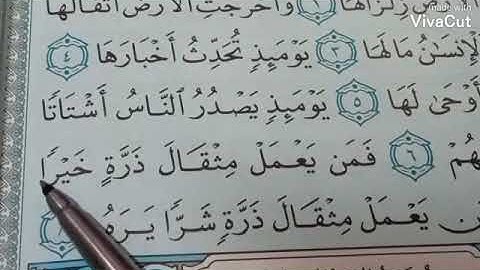 made with
VivaCut
زِلْزَالَهَا ١ وَأَخْرَجَتِ ٱلْأَرْضُ أَثْقَالَهَا
ٱلْإِنسَٰنُ مَا لَهَا ٣ يَوْمَئِذٍ تُحَدِّثُ أَخْبَارَهَا ٤
أَوْحَىٰ لَهَا ٥ يَوْمَئِذٍ يَصْدُرُ ٱلنَّاسُ أَشْتَاتًا
هُمْ ٦ فَمَن يَعْمَلْ مِثْقَالَ ذَرَّةٍ خَيْرًا
ن يَعْمَلْ مِثْقَالَ ذَرَّةٍ شَرًّا يَرَهُ